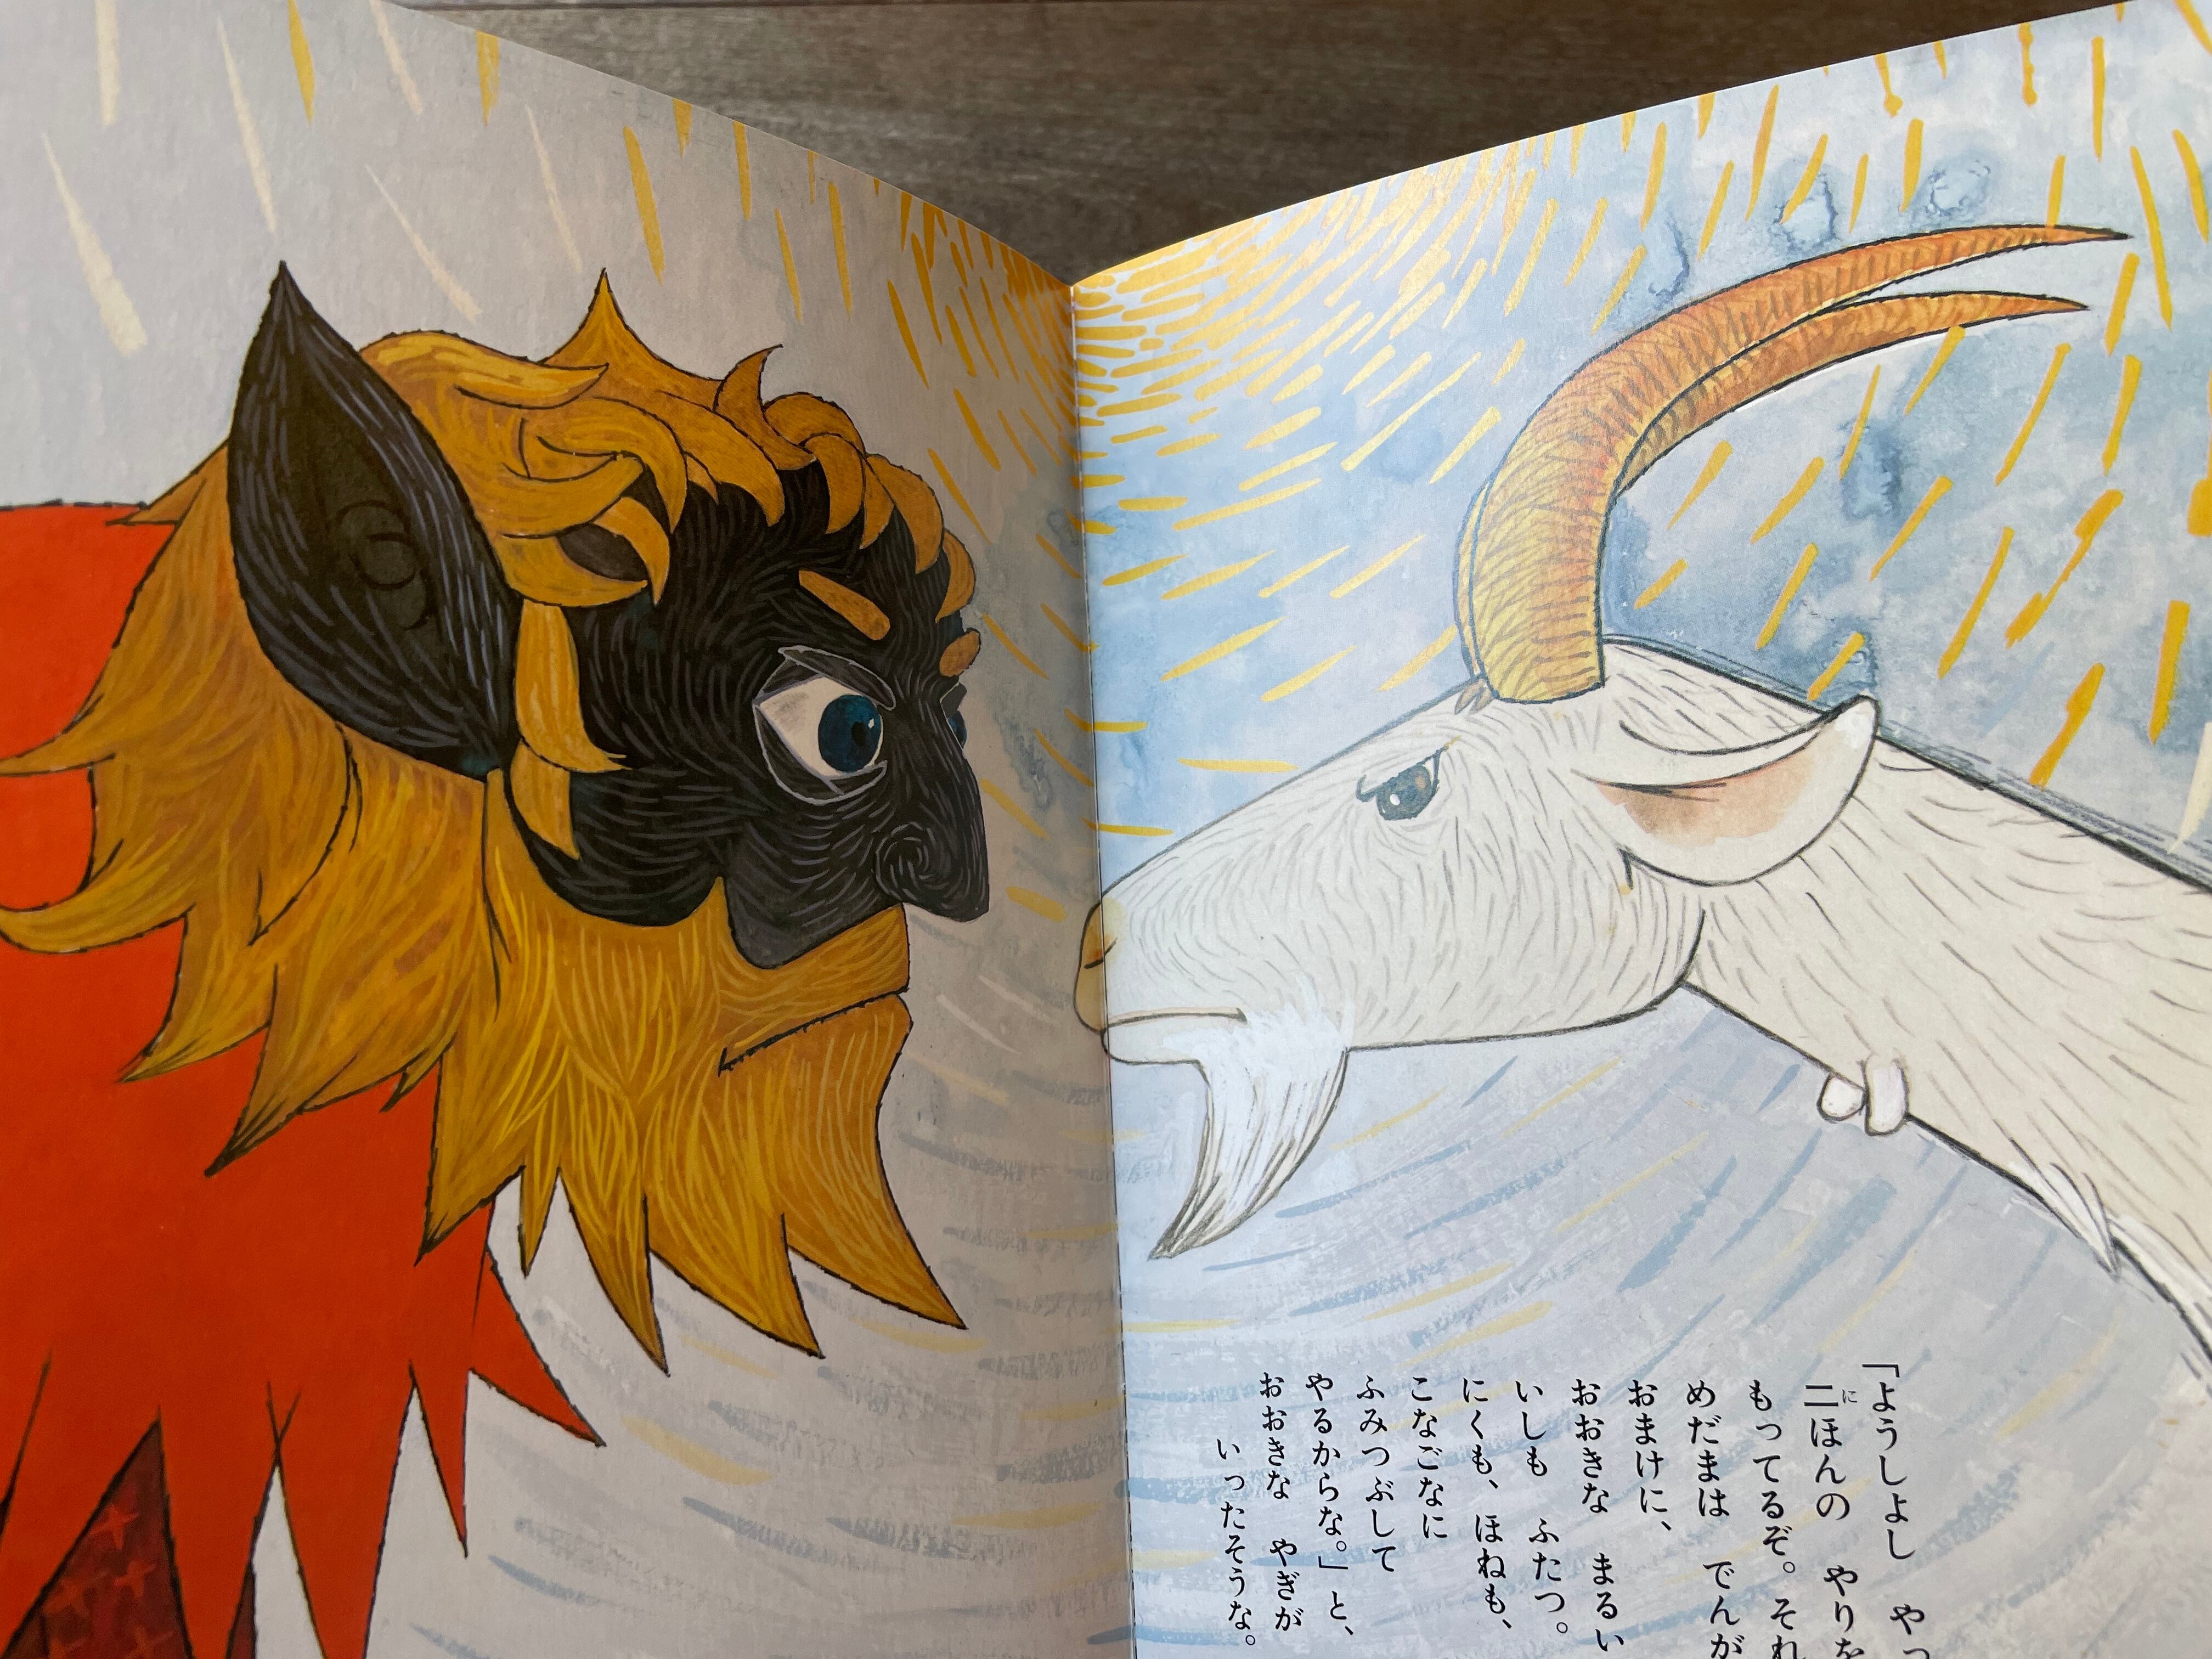 「ようしよし　やっ
二ほんの　やりを
もってるぞ。それ
めだまは　でんが
おまけに、
おおきな　まるい
いしも　ふたつ。
にくも、ほねも、
こなごなに
ふみつぶして
やるからな。」と、
おおきな　やぎが
いったそうな。